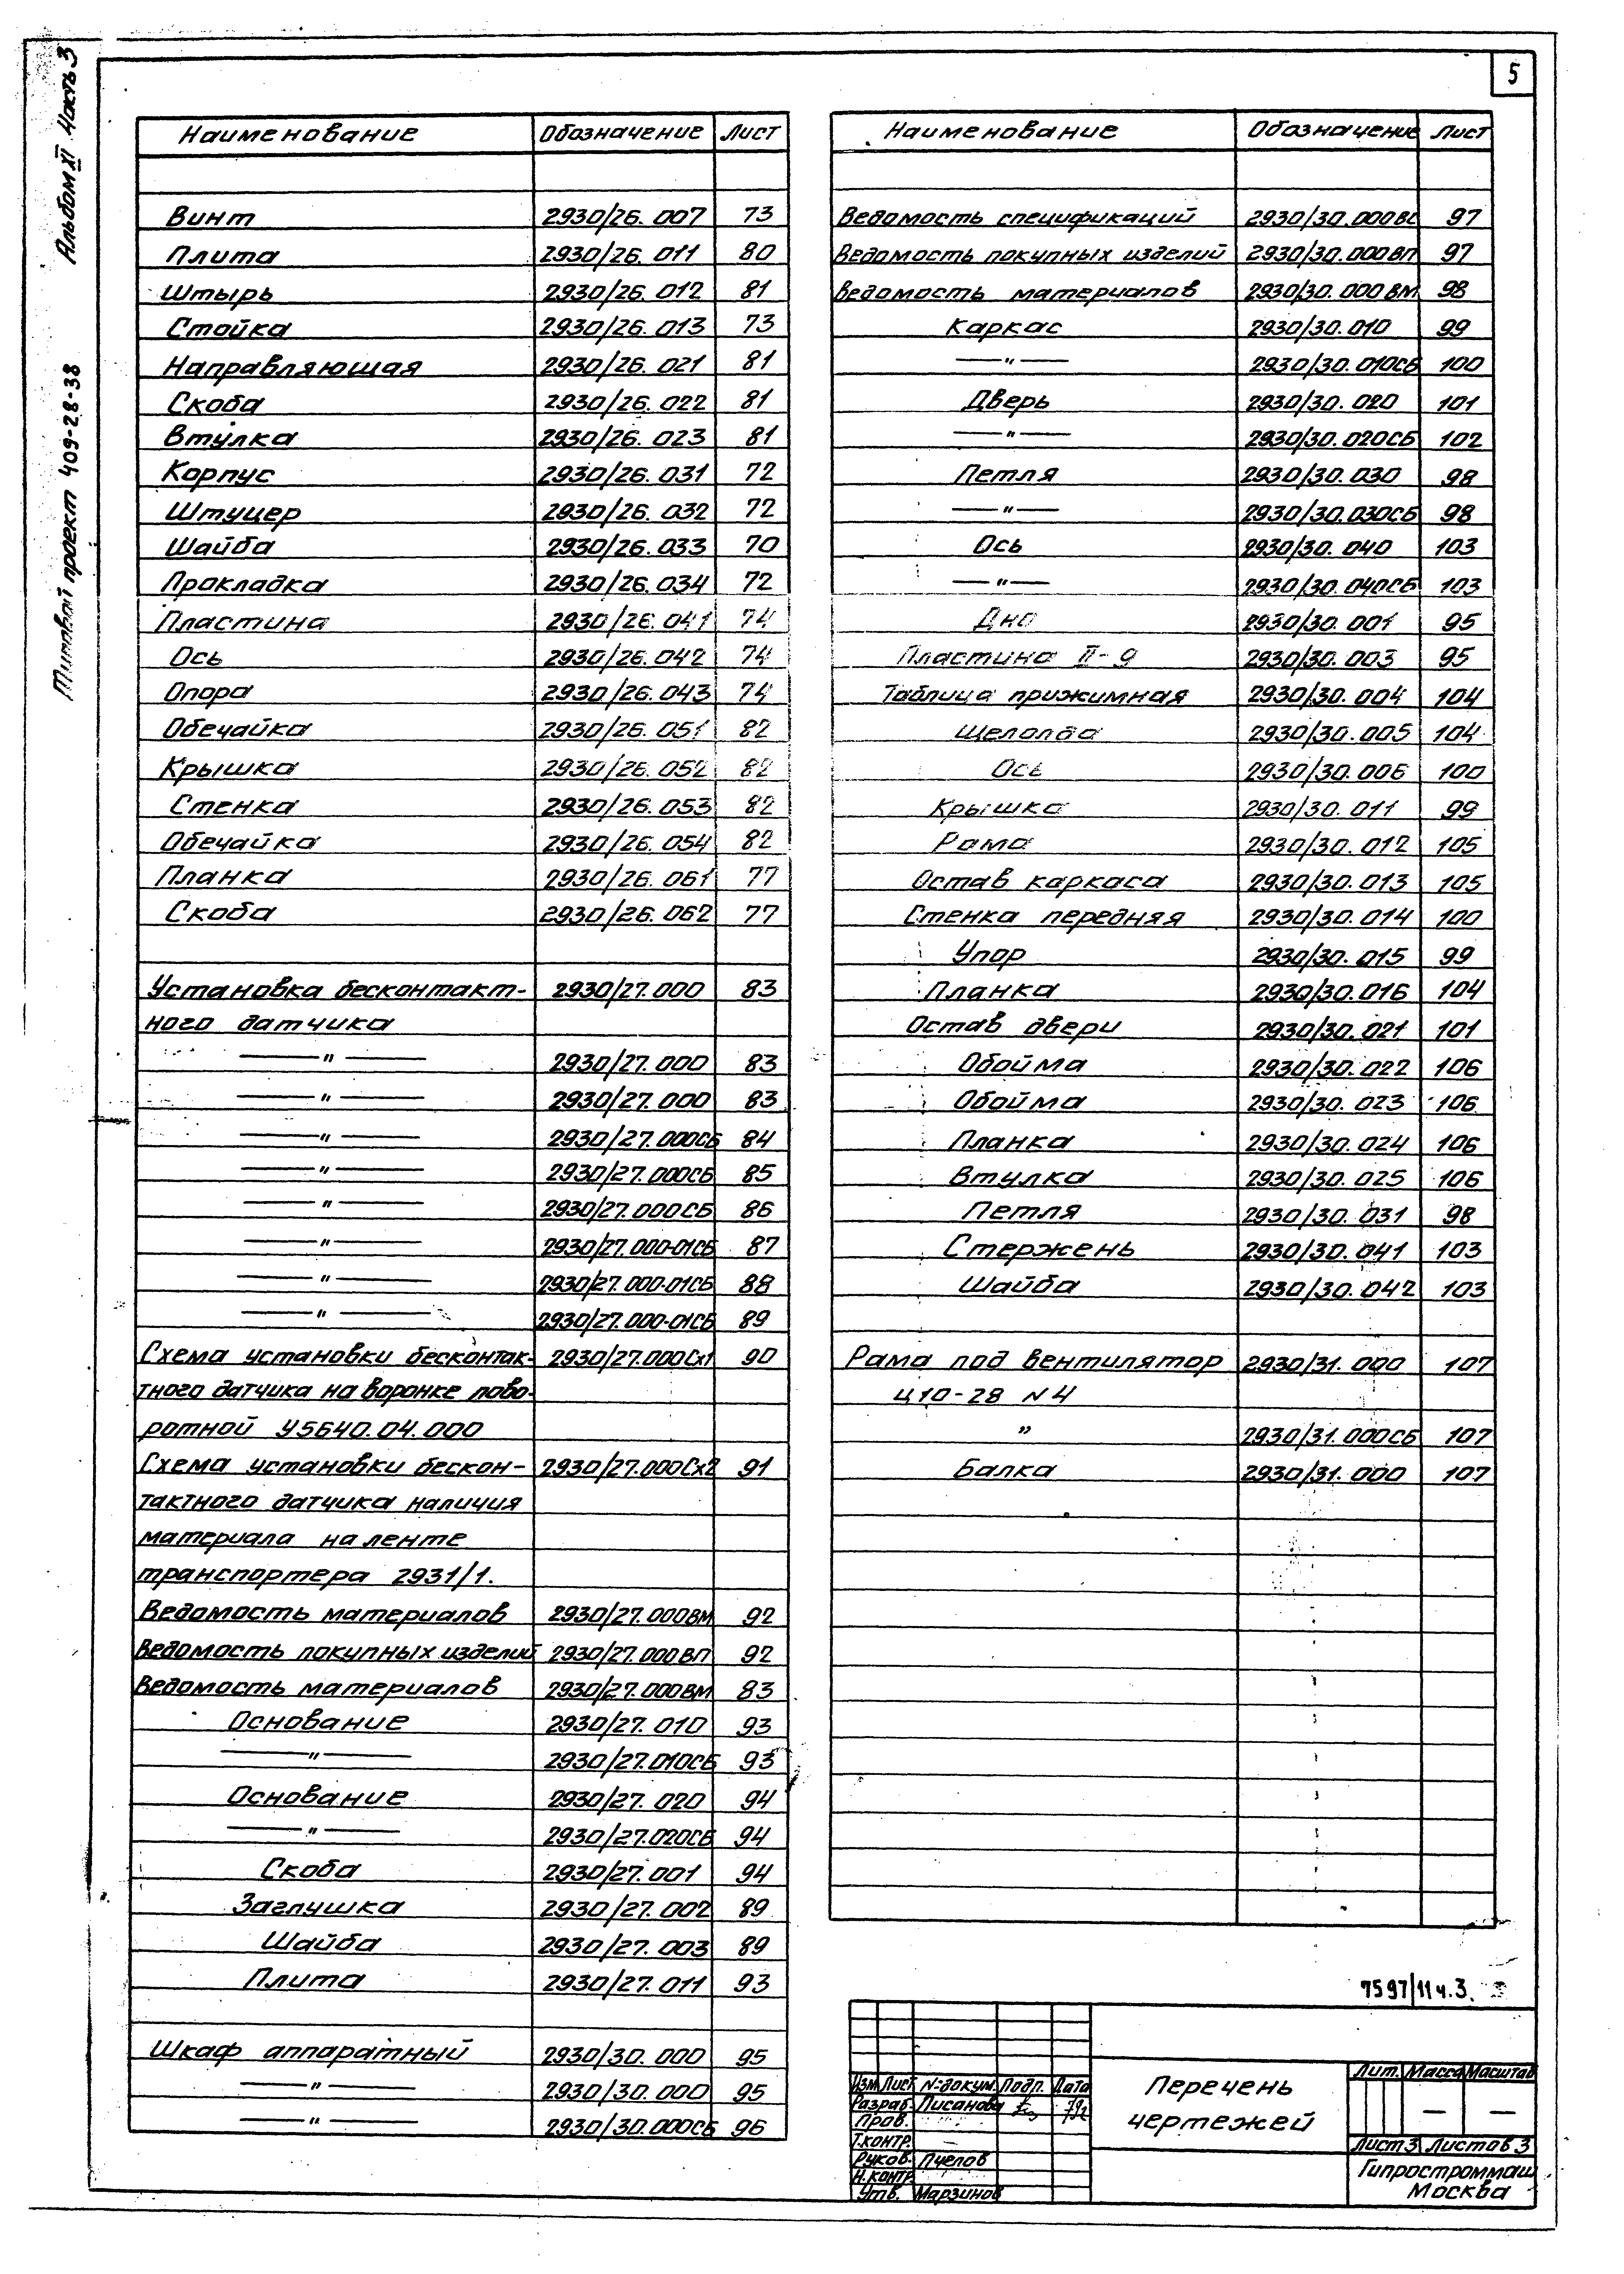 5
Альбом XI Часть 3
Типовой проект 409-28-38
Наименование Обозначение Лист
Винт 2930/26.007 73
Плита 2930/26.011 80
Штырь 2930/26.012 81
Стойка 2930/26.013 73
Направляющая 2930/26.021 81
Скоба 2930/26.022 81
Втулка 2930/26.023 81
Корпус 2930/26.031 72
Штуцер 2930/26.032 72
Шайба 2930/26.033 70
Прокладка 2930/26.034 72
Пластина 2930/26.041 74
Ось 2930/26.042 74
Опора 2930/26.043 74
Обечайка 2930/26.051 82
Крышка 2930/26.052 82
Стенка 2930/26.053 82
Обечайка 2930/26.054 82
Планка 2930/26.061 77
Скоба 2930/26.062 77
Установка бесконтакт- 2930/27.000 83
ного датчика
—"— 2930/27.000 83
—"— 2930/27.000 83
—"— 2930/27.000СБ 84
—"— 2930/27.000СБ 85
—"— 2930/27.000СБ 86
—"— 2930/27.000-01СБ 87
—"— 2930/27.000-01СБ 88
—"— 2930/27.000-01СБ 89
Схема установки бесконтак- 2930/27.000Сх1 90
тного датчика на воронке пово-
ротной У5640.04.000
Схема установки бескон- 2930/27.000Сх2 91
тактного датчика наличия
материала на ленте
транспортера 2931/1.
Ведомость материалов 2930/27.000ВМ 92
Ведомость покупных изделий 2930/27.000ВП 92
Ведомость материалов 2930/27.000ВМ 83
Основание 2930/27.010 93
—"— 2930/27.010СБ 93
Основание 2930/27.020 94
—"— 2930/27.020СБ 94
Скоба 2930/27.001 94
Заглушка 2930/27.002 89
Шайба 2930/27.003 89
Плита 2930/27.011 93
Шкаф аппаратный 2930/30.000 95
—"— 2930/30.000 95
—"— 2930/30.000СБ 96
Наименование Обозначение Лист
Ведомость спецификаций 2930/30.000ВС 97
Ведомость покупных изделий 2930/30.000ВП 97
Ведомость материалов 2930/30.000ВМ 98
Каркас 2930/30.010 99
—"— 2930/30.010СБ 100
Дверь 2930/30.020 101
—"— 2930/30.020СБ 102
Петля 2930/30.030 98
—"— 2930/30.030СБ 98
Ось 2930/30.040 103
—"— 2930/30.040СБ 103
Дно 2930/30.001 95
Пластина II-9 2930/30.003 95
Таблица прижимная 2930/30.004 104
Щеколда 2930/30.005 104
Ось 2930/30.006 100
Крышка 2930/30.011 99
Рама 2930/30.012 105
Остав каркаса 2930/30.013 105
Стенка передняя 2930/30.014 100
Упор 2930/30.015 99
Планка 2930/30.016 104
Остав двери 2930/30.021 101
Обойма 2930/30.022 106
Обойма 2930/30.023 106
Планка 2930/30.024 106
Втулка 2930/30.025 106
Петля 2930/30.031 98
Стержень 2930/30.041 103
Шайба 2930/30.042 103
Рама под вентилятор 2930/31.000 107
Ц10-28 N4
" 2930/31.000СБ 107
Балка 2930/31.000 107
7597/11 ч.3.
Изм Лист № докум. Подп. Дата
Разраб. Лисанова
Пров.
Т.контр.
Руков. Пчелов
Н.контр.
Утв. Марзинов
Перечень
чертежей
Лит. Масса Масштаб
— —
Лист 3 Листов 3
Гипростроммаш
Москва